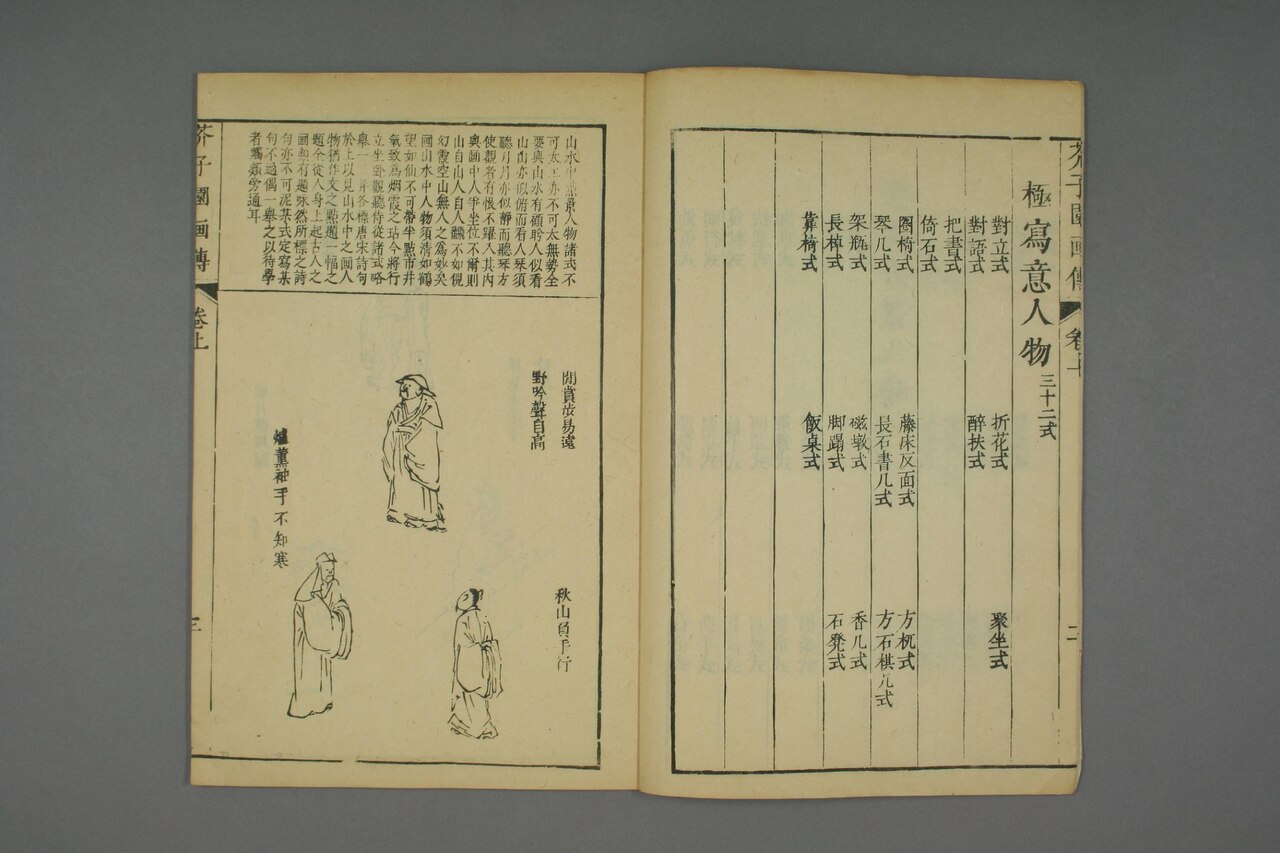 芥子園画傳 卷上 二
極寫意人物 三十二式
對立式 折花式 聚坐式
對語式 醉扶式
把書式
倚石式
圈椅式 藤床反面式 方杌式
琴几式 長石書几式 方石棋几式
架瓶式 磁墩式 香几式
長棹式 脚蹋式 石凳式
靠椅式 飯桌式
山水中點景人物諸式不
可太工亦不可太無勢全
要與山水有顧盼人似看
山山亦似俯而看人琴須
聽月月亦似靜而聽琴方
使觀者有恨不躍入其內
與畵中人爭坐位不爾則
山自山人自人翻不如倪
幻霞空山無人之爲妙矣
國山水中人物須清如鶴
望如仙不可帶半點市井
氣致爲烟霞之玷今將行
立坐卧觀聽侍從諸式略
舉一二并各標唐宋詩句
於上以見山水中之画人
物猶作文之點題一幅之
題今從人身上起古人之
國扣有題咏然所標之詩
句亦不可泥某式定寫某
句不過偶一舉之以待學
者觸類旁通耳
閒賞步易遠
野吟聲自高
秋山負手行
爐薰袖手不知寒
芥子園画傳 卷上 三